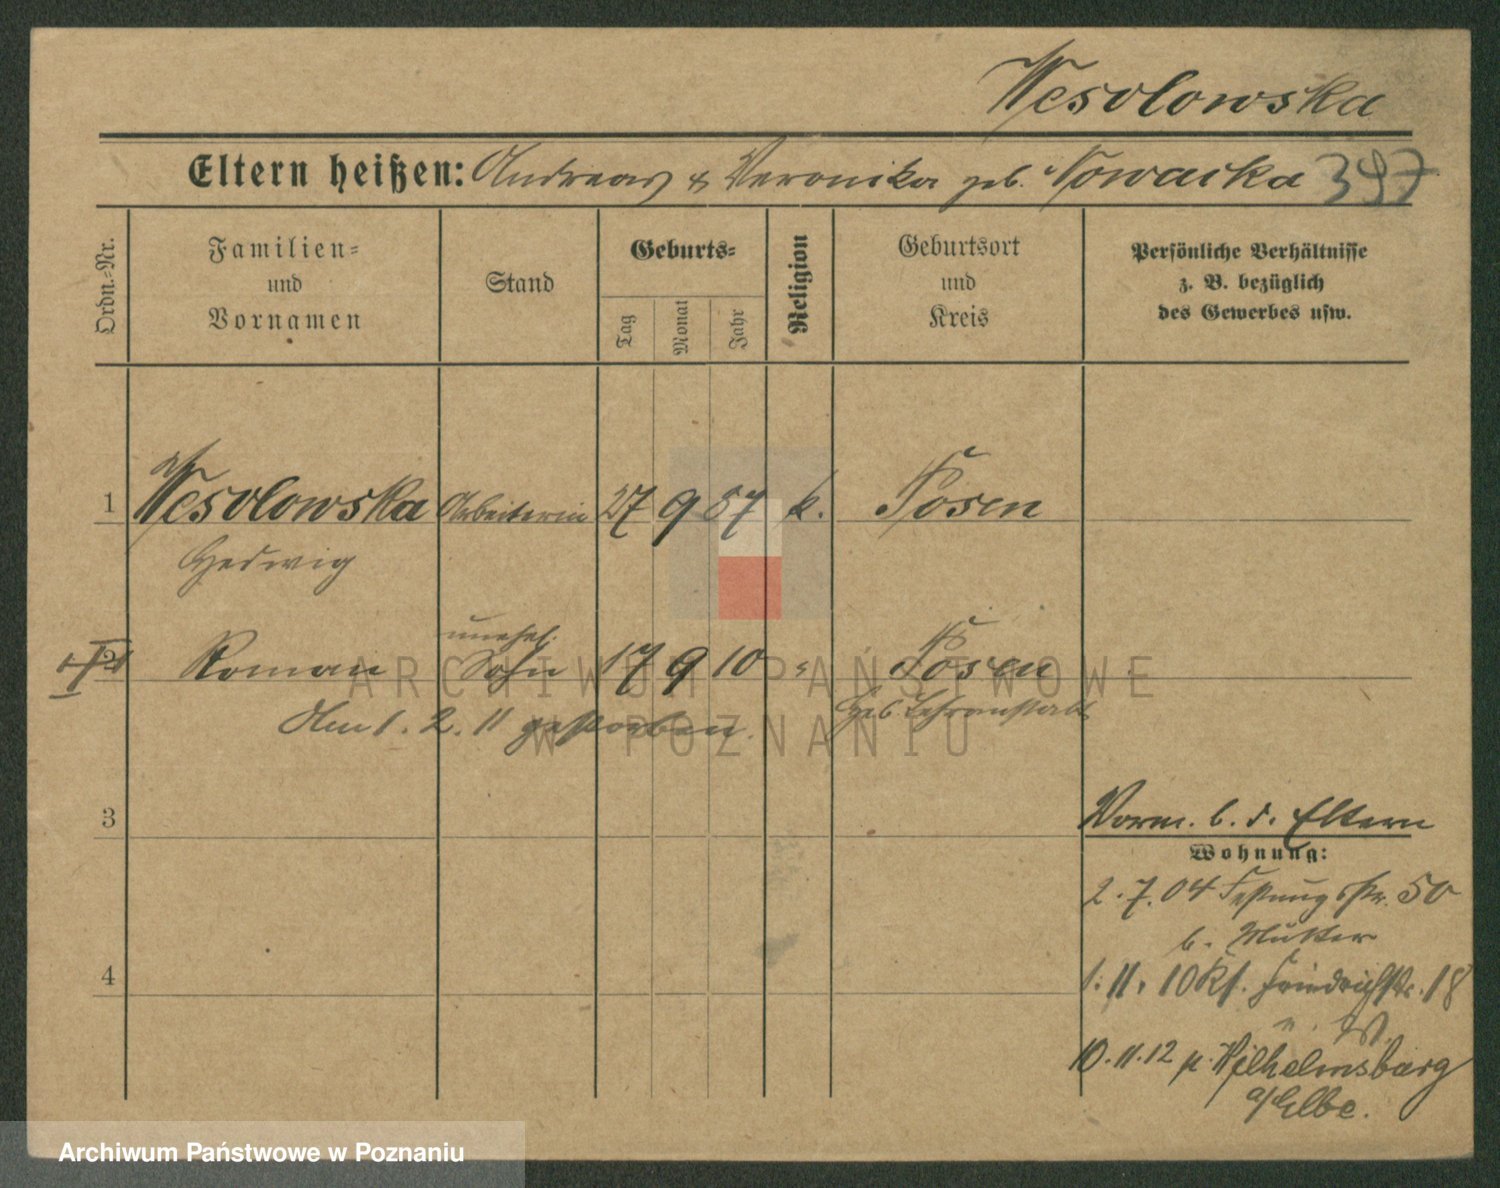 Wesolowska
Eltern heißen: Andreas & Veronika geb. Nowacka 397
Ordn.-Nr.
Familien-
und
Vornamen
Stand
Geburts-
Tag
Monat
Jahr
Religion
Geburtsort
und
Kreis
Persönliche Verhältnisse
z. B. bezüglich
des Gewerbes usw.
1 Wesolowska Arbeiterin 27 9 87 k. Posen
Hedwig
unehel.
2 Roman Sohn 17 9 10 " Posen
Heb. Lehranstalt
Am 1. 2. 11 gestorben.
3
Vorm. b. d. Eltern
Wohnung:
2. 7. 04 Festungsstr. 50
b. Mutter
4
1. 11. 10 Kl. Friedrichstr. 18
10. 11. 12 n. Wilhelmsburg
a/Elbe.
ARCHIWUM PAŃSTWOWE
W POZNANIU
Archiwum Państwowe w Poznaniu